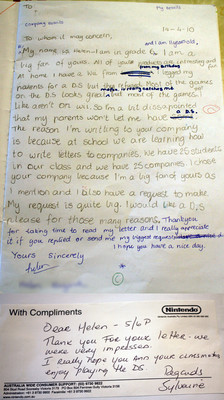 To ,
My words
company words
14-4-10
To whom it may concern,
and I am 11 years old,
"My name is in grade 6. I am a
big fan of yours. All of your products are interesting and
At home I have a Wii from birthday. I begged my
parents for a DS but
on the DS looks great but most of the games
like aren't on wii. So I'm a bit dissapointed
that my parents won't let me have a D.S.
The reason I'm writing to your company
is because at school we are learning how
to write letters to companies. We have 25 students
in our class and we have 25 companies. I chose
your company because I'm a big fan of yours as
I mention and I also have a request to make.
My request is quite big. I would like a D.S
please for those many reasons. Thankyou
for taking time to read my letter and I really appreciate
it if you replied or send me my biggest request
I hope you have a nice day.
Yours Sincerely
With Compliments
Nintendo
Dear Helen - 5/6P
Thank you For your letter - we
were very impressed.
I really hope you And your classmates
enjoy playing the DS
Regards
Sylvaine
AUSTRALIA WIDE CONSUMER SUPPORT: (03) 9730 9822